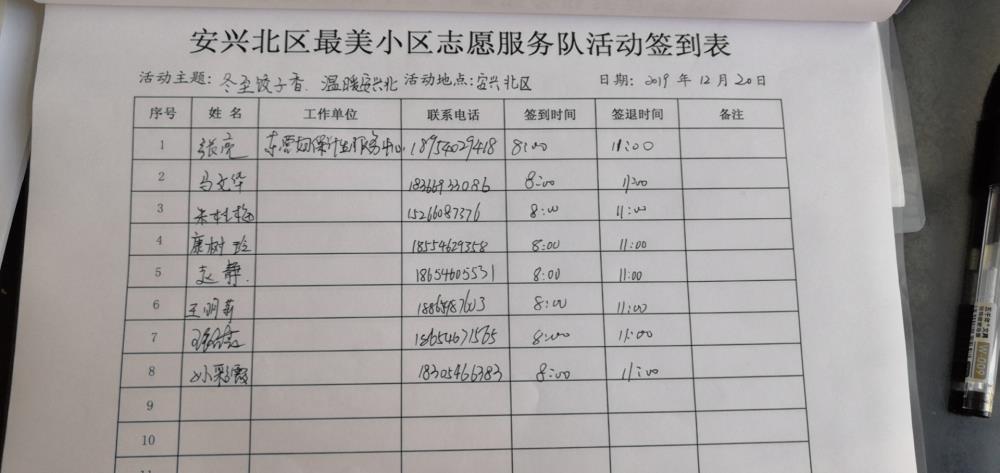 安兴北区最美小区志愿服务队活动签到表
活动主题：冬至饺子香、温暖安兴北 活动地点：安兴北区 日期：2019 年 12 月 20 日
序号 姓 名 工作单位 联系电话 签到时间 签退时间 备注
1 张亮 东营妇保计生服务中心 18954029418 8:00 11:00
2 马文华 18366933086 8:00 11:00
3 15266087376 8:00 11:00
4 康树玲 18554629358 8:00 11:00
5 赵静 18654605531 8:00 11:00
6 王明莉 8:00 11:00
7 18654671565 8:00 11:00
8 孙彩霞 18305466383 8:00 11:00
9
10